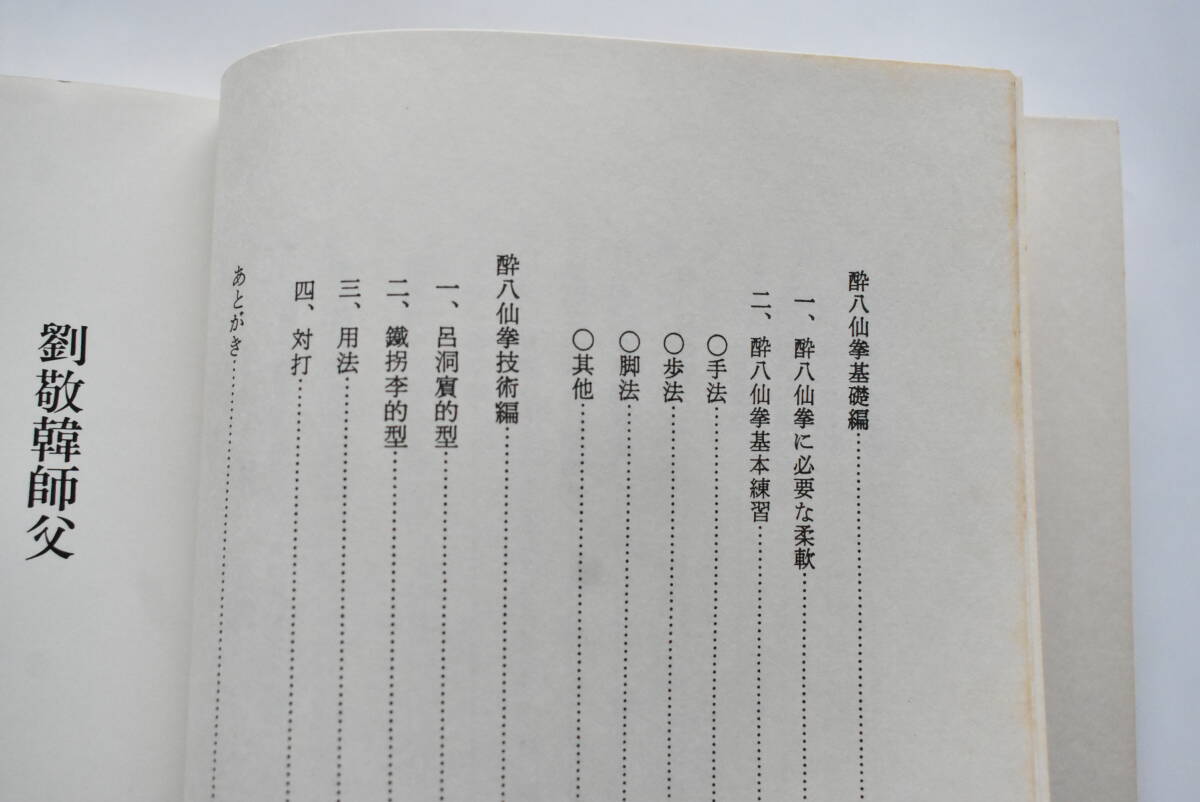 酔八仙拳基礎編
一、酔八仙拳に必要な柔軟
二、酔八仙拳基本練習
〇手法
〇歩法
〇脚法
〇其他
酔八仙拳技術編
一、呂洞賓的型
二、鐵拐李的型
三、用法
四、対打
あとがき
劉敬韓師父